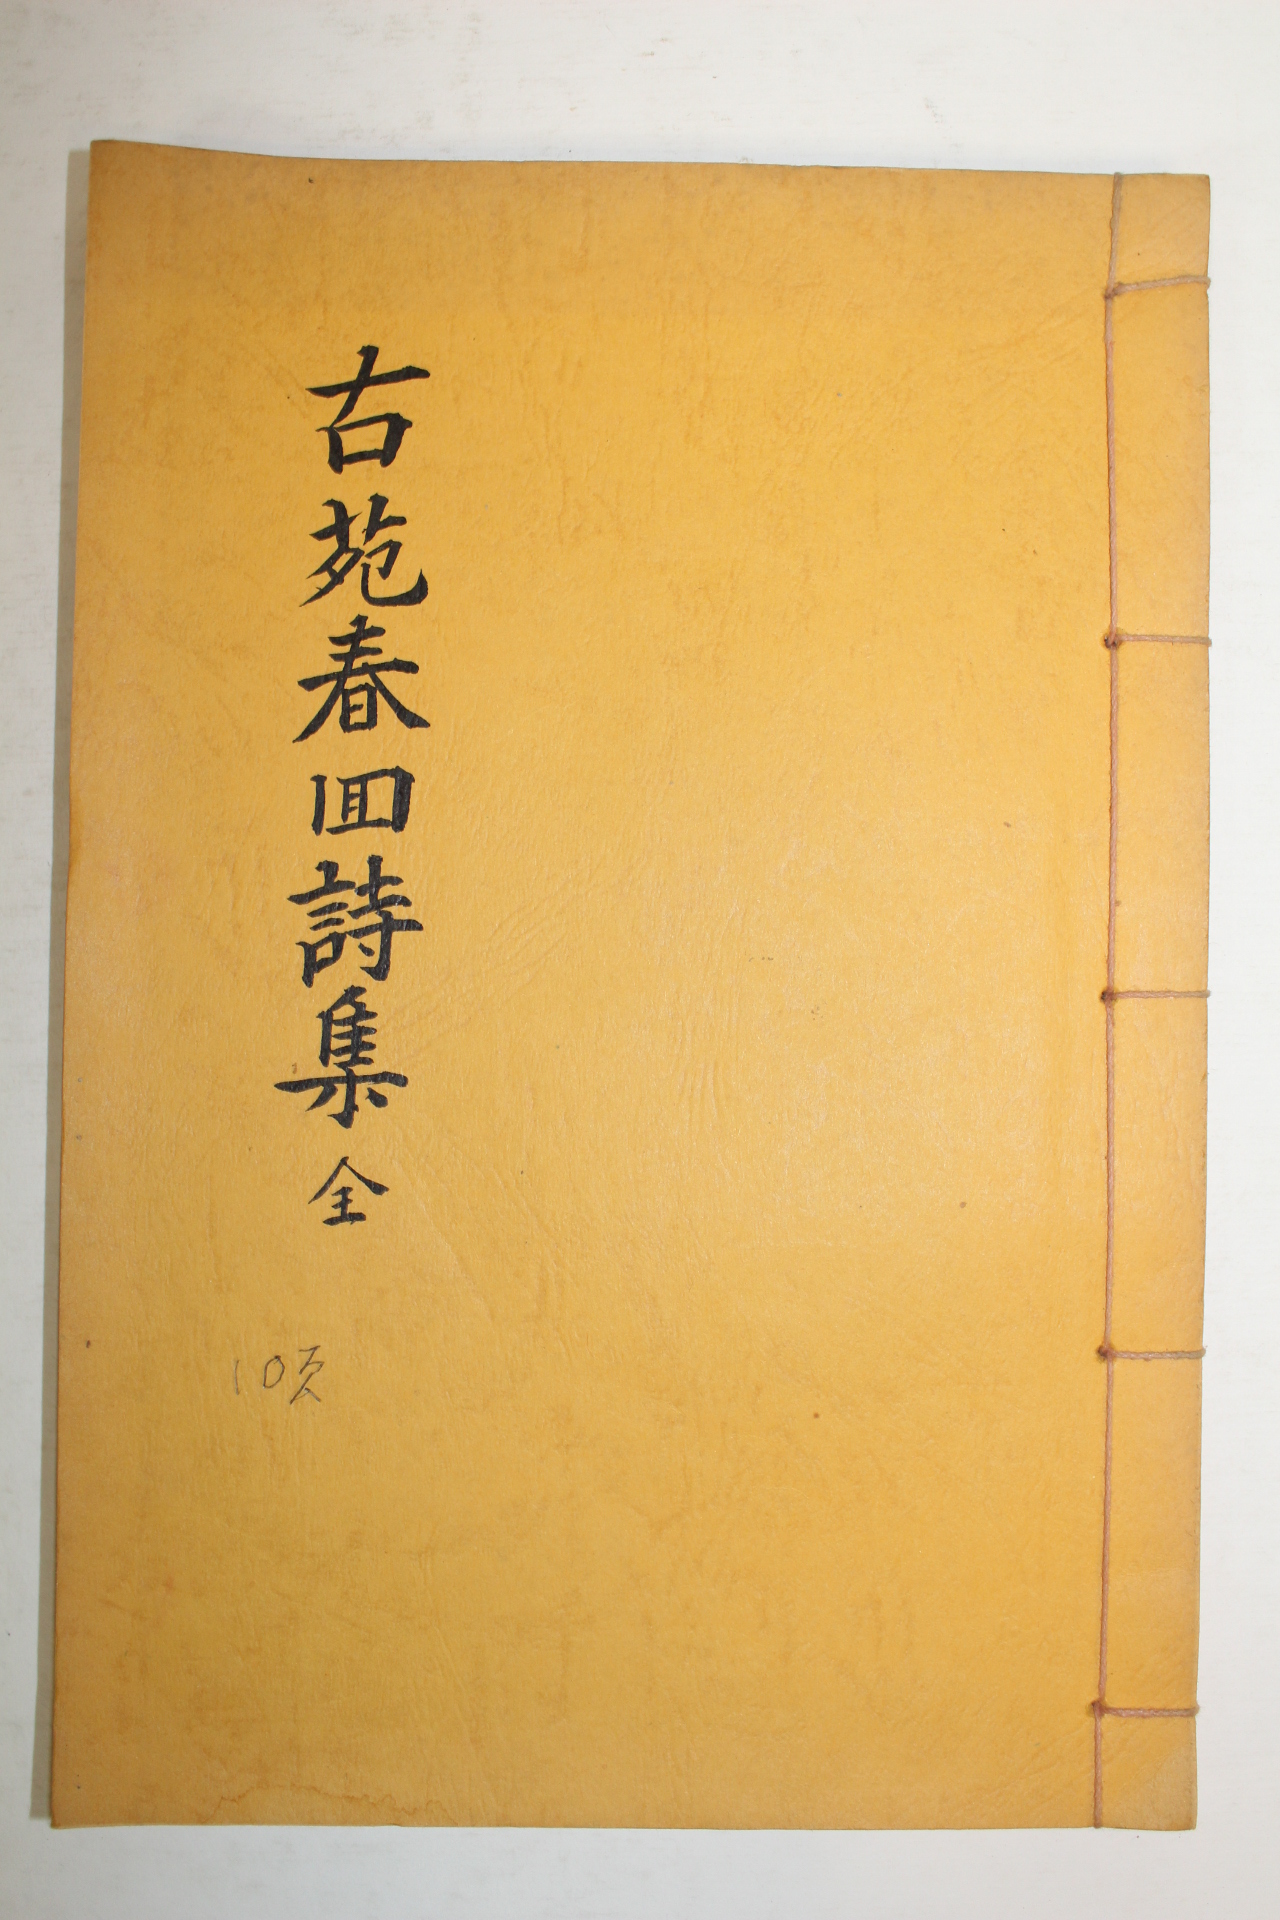 古苑春回詩集 全
10頁